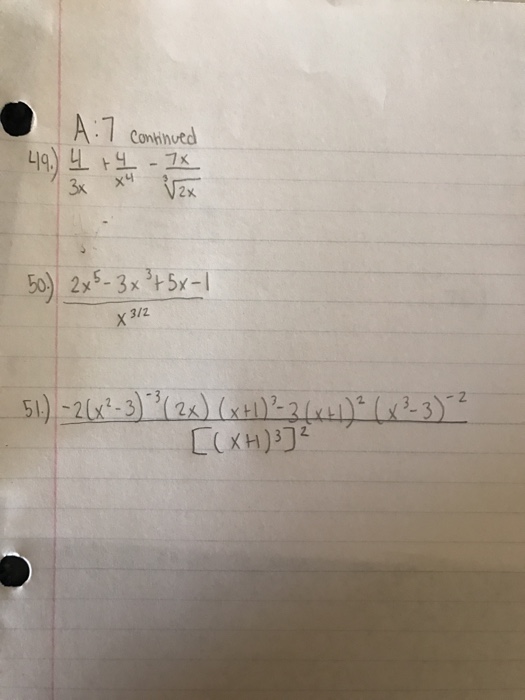 A:7 Continued
49.) 4/3x + 4/x⁴ - 7x/∛2x
50.) 2x⁵-3x³+5x-1
x^3/2
51.) -2(x²-3)⁻³(2x)(x+1)³-3(x+1)²(x³-3)⁻²
[(x+1)³]²